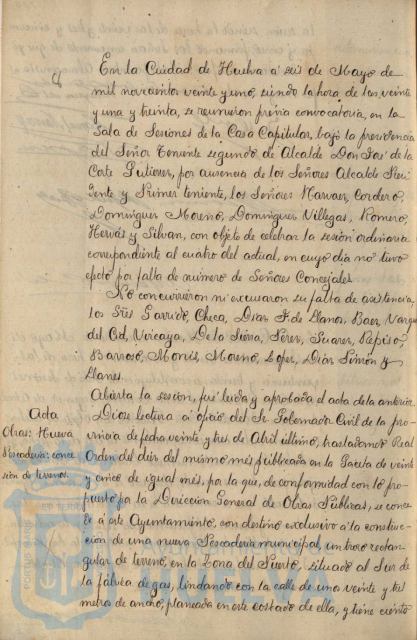 En la Ciudad de Huelva á seis de Mayo de
mil novecientos veinte y uno, siendo la hora de las veinte
y una y treinta, se reunieron previa convocatoria, en la
Sala de Sesiones de la Casa Capitular, bajo la presidencia
del Señor Teniente segundo de Alcalde Don José de la
Corte Gutierrez, por ausencia de los Señores Alcalde Presi
dente y Primer teniente, los Señores Narvaez, Cordero,
Dominguez Moreno, Dominguez Villegas, Romero,
Hervás y Silvan, con objeto de celebrar la sesión ordinaria
correspondiente al cuatro del actual, en cuyo dia no tuvo
efecto por falta de número de Señores Concejales.
No concurrieron ni excusaron su falta de asistencia,
los Sres Garrido, Checa, Diaz F. de Llanos, Baez, Vargas
del Cid, Vizcaya, De la Sierra, Perez, Suarez, Pepito,
Barroso, Monis, Moreno, Lopez, Diaz Simón y
Llanes.
Abierta la sesión, fué leida y aprobada el acta de la anterior.
Acta
Dióse lectura á oficio del Sr Gobernador Civil de la pro
Obras: Nueva
vincia de fecha veinte y tres de Abril último, trasladando Real
Pescaderia: conce
Orden del diez del mismo mes publicada en la Gaceta de veinte
sión de terrenos.
y cinco de igual mes, por la que, de conformidad con lo pro
puesto por la Dirección General de Obras Públicas, se conce
de á este Ayuntamiento, con destino exclusivo á la construc
ción de una nueva Pescaderia municipal, un trozo rectan
gular de terreno, en la Zona del Puerto, situado al Sur de
la fábrica de gas, lindando con la calle de una veinte y tres
metros de ancho, planeada en este costado de ella, y tiene ciento